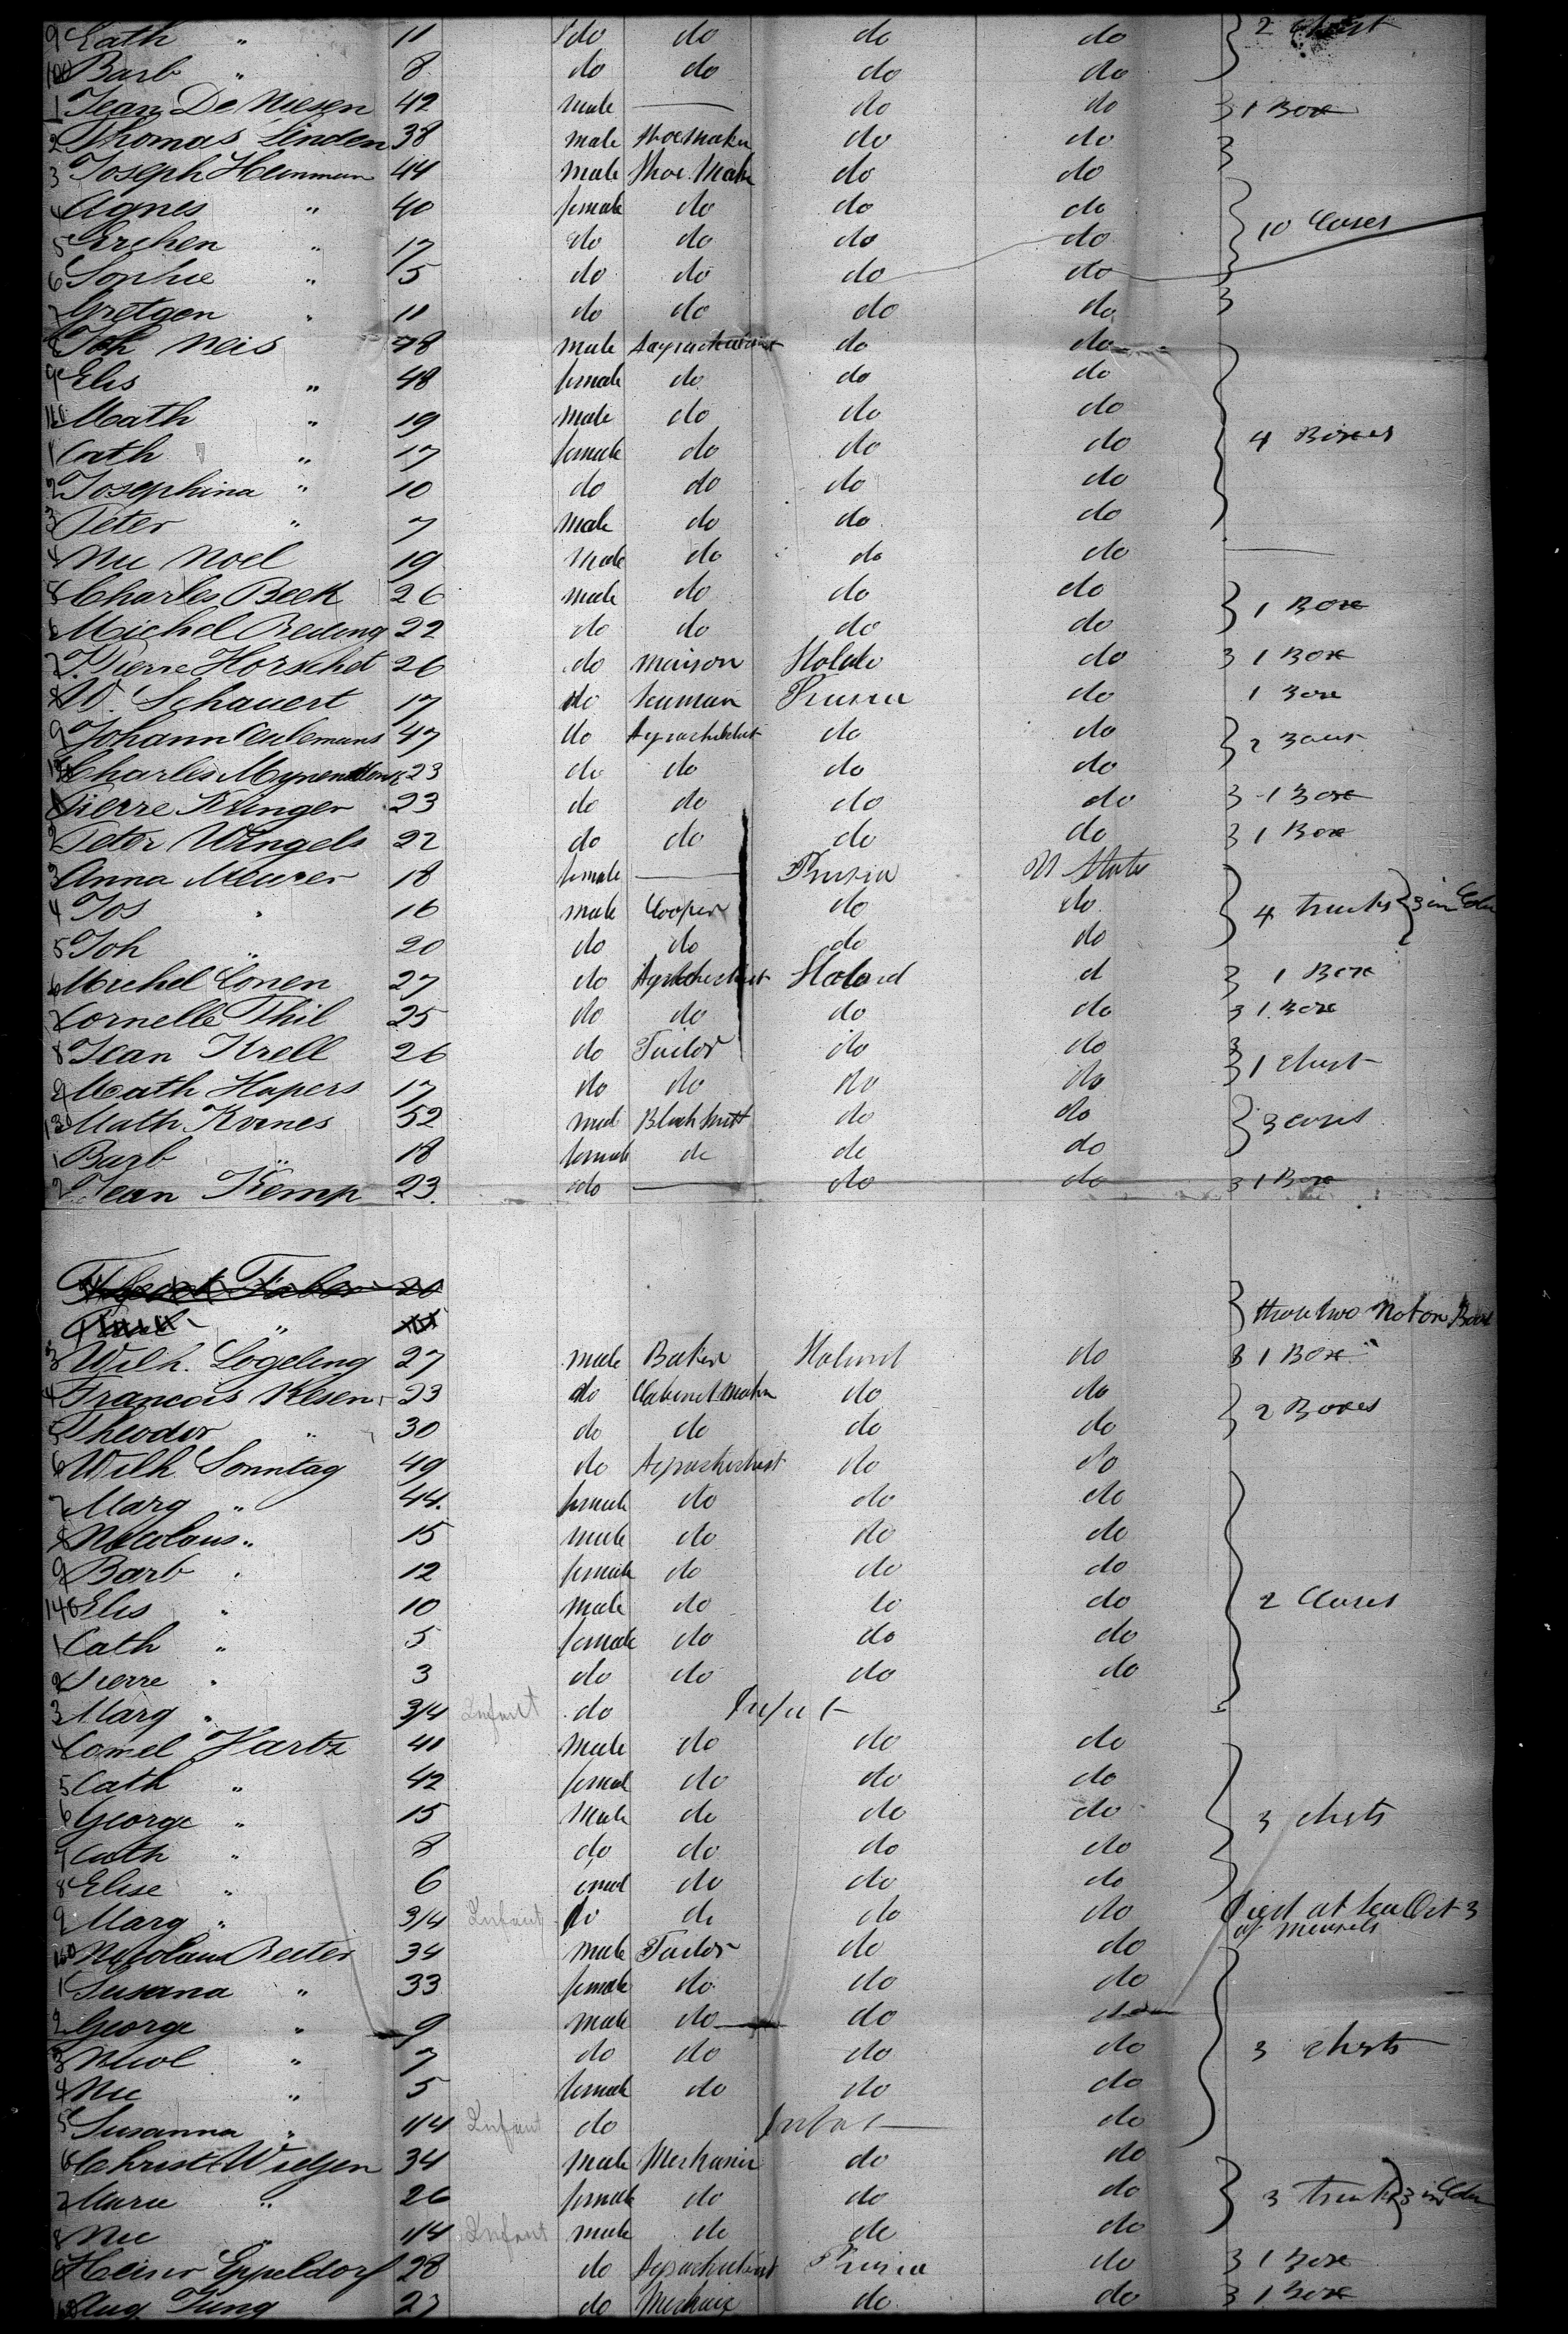 9 Cath " 11 do do do do 2 Chest
100 Barb " 8 do do do do
1 Jean De Niesen 42 male — do do 1 Box
2 Thomas Linden 38 male Shoemaker do do
3 Joseph Heinman 44 male Shoe Make do do
4 Agnes " 40 female do do do 10 Cases
5 " 17 do do do do
6 Sophie " 5 do do do do
7 Gretgen " 11 do do do do
8 Joh Neis 48 male do do
9 Elis " 48 female do do do
110 Math " 19 male do do do
1 Cath " 17 female do do do 4 Boxes
2 Josephina " 10 do do do do
3 Peter " 7 male do do do
4 Nic Noel 19 Male do do do —
5 Charles Beek 26 male do do do 1 Box
6 Michel Reding 22 do do do do
7 Pierre Horschet 26 do maison do 1 Box
8 W. Schauert 17 do Prusia do 1 Box
9 Johann Ceulemans 47 do do do 2
120 Charles 23 do do do do
1 Pierre Kringer 23 do do do do 1 Box
2 Peter Wingels 22 do do do do 1 Box
3 Anna Meurer 18 female — Prusia U States
4 Jos " 16 male Cooper do do 4 trunks 3 in
5 Joh " 20 do do do do
6 Michel Conen 27 do Holand d 1 Box
7 Cornelle Thil 25 do do do do 1 Box
8 Jean Krell 26 do Tailor do do 1 Chest
9 Math Hapers 17 do do do do
130 Math Krines 52 male do do 3 cases
1 Barb " 18 female do do do
2 Jean Kemp 23. do — do do 1 Box
Faber 20
" these two not on Board
3 Wilh. Logeling 27 male Baker Holand do 1 Box
4 Francois Kesen 23 do Cabinet Maker do do 2 Boxes
5 Theodor " 30 do do do do
6 Wilh Sonntag 49 do do do
7 Marg " 44. female do do do
8 Nicolaus " 15 male do do do
9 Barb " 12 female do do do
140 Elis " 10 male do do do 2 Cases
1 Cath " 5 female do do do
2 Pierre " 3 do do do do
3 Marg " 3/4 Infant do Infant
4 Cornel Hartz 41 male do do do
5 Cath " 42 female do do do
6 George " 15 Male do do do 3 chests
7 Cath " 8 do do do do
8 Elise " 6 do do do
9 Marg " 3/4 Infant do do do do Died at Sea Oct 3
of Measels
150 Nicolaus Reiter 34 male Tailor do do
1 Susana " 33 female do do do
2 George " 9 male do do do
3 Nicol " 7 do do do do 3 chests
4 Nic " 5 female do do do
5 Susanna " 1/4 Infant do Infant do
6 Christ 34 male Mechanic do do
7 Maria " 26 female do do do 3 trunks 3 in
8 Nic " 1/4 Infant male do do do
9 Eppeldorf 28 do Prusia do 1 Box
160 Aug Jung 27 do Mechanic do do 1 Box